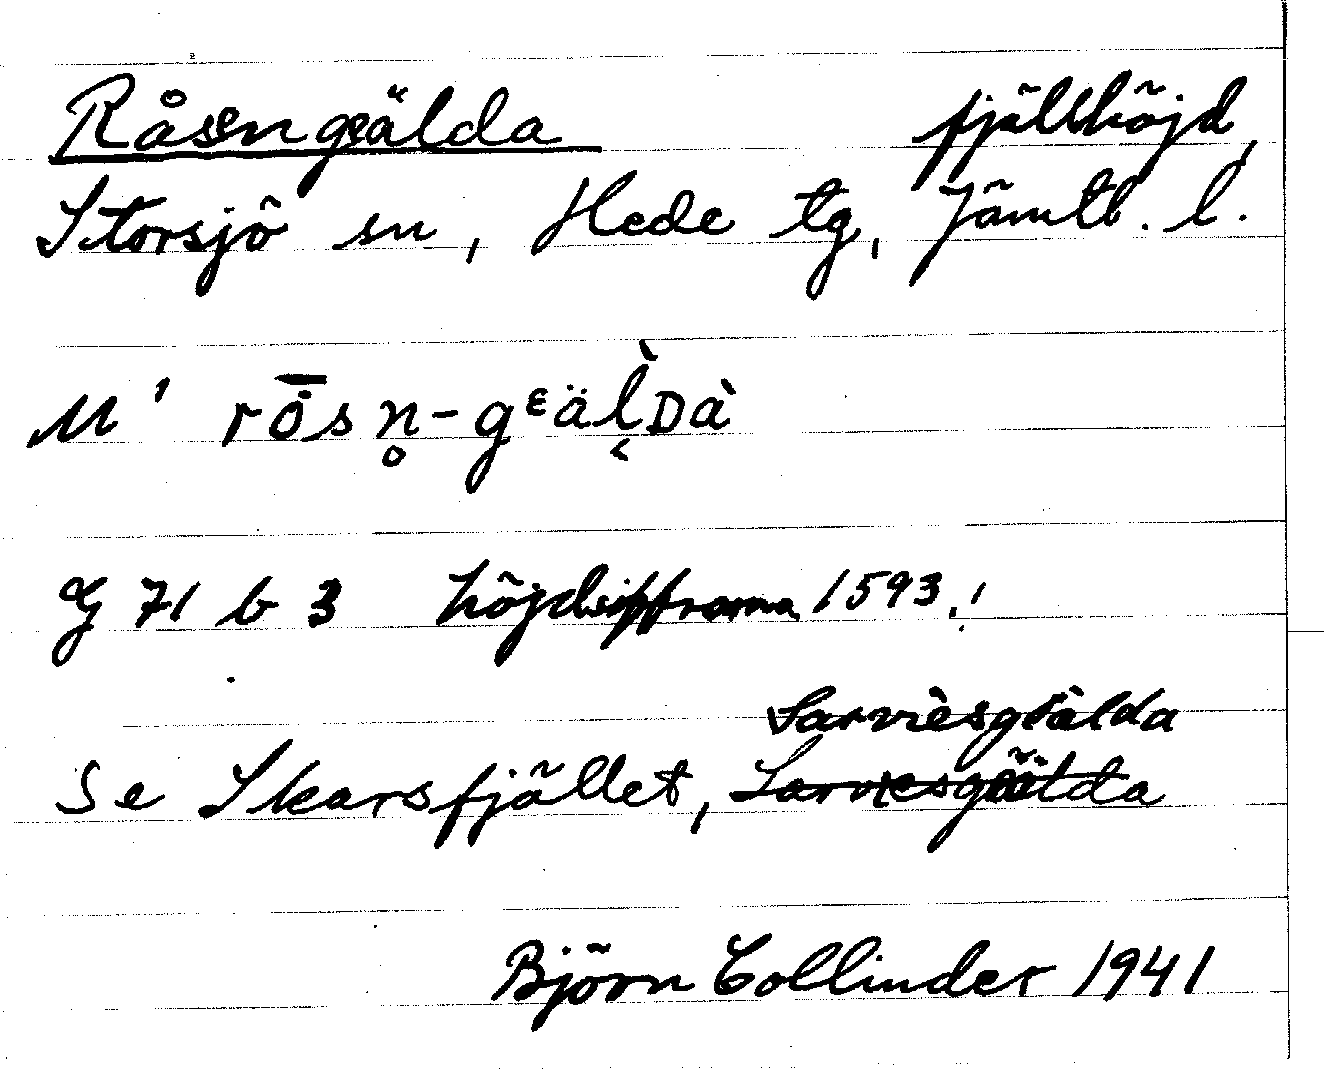 Råsengeälda fjällhöjd,
Storsjö sn, Hede tg, Jämtl. l.
M' rō̇sn̥-gᵋäl̀ᴅà
G 71 b 3 höjdsiffrorna 1593.!
Sarvièsgiälda
Se Skarsfjället, Sarviesgäälda
Björn Collinder 1941